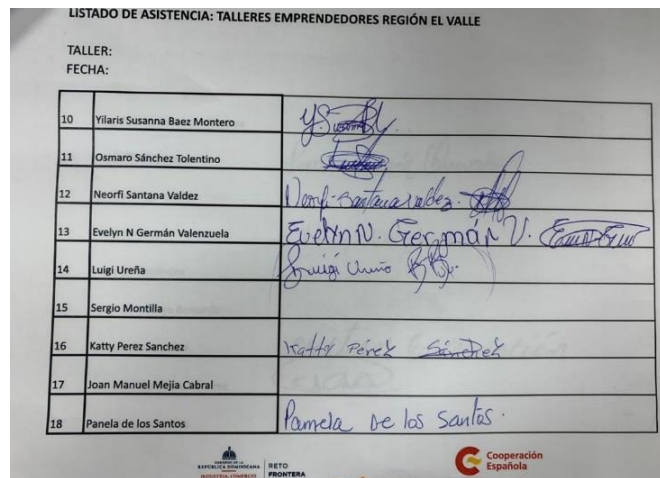 LISTADO DE ASISTENCIA: TALLERES EMPRENDEDORES REGIÓN EL VALLE
TALLER:
FECHA:
10 Yilaris Susanna Baez Montero
11 Osmaro Sánchez Tolentino
12 Neorfi Santana Valdez Neorfi Santana valdez.
13 Evelyn N Germán Valenzuela Evelyn N. Germán V.
14 Luigi Ureña Luigi
15 Sergio Montilla
16 Katty Perez Sanchez Katty Pérez Sánchez
17 Joan Manuel Mejia Cabral
18 Panela de los Santos Pamela De los Santos.
GOBIERNO DE LA
REPÚBLICA DOMINICANA
INDUSTRIA, COMERCIO
RETO
FRONTERA
Cooperación
Española